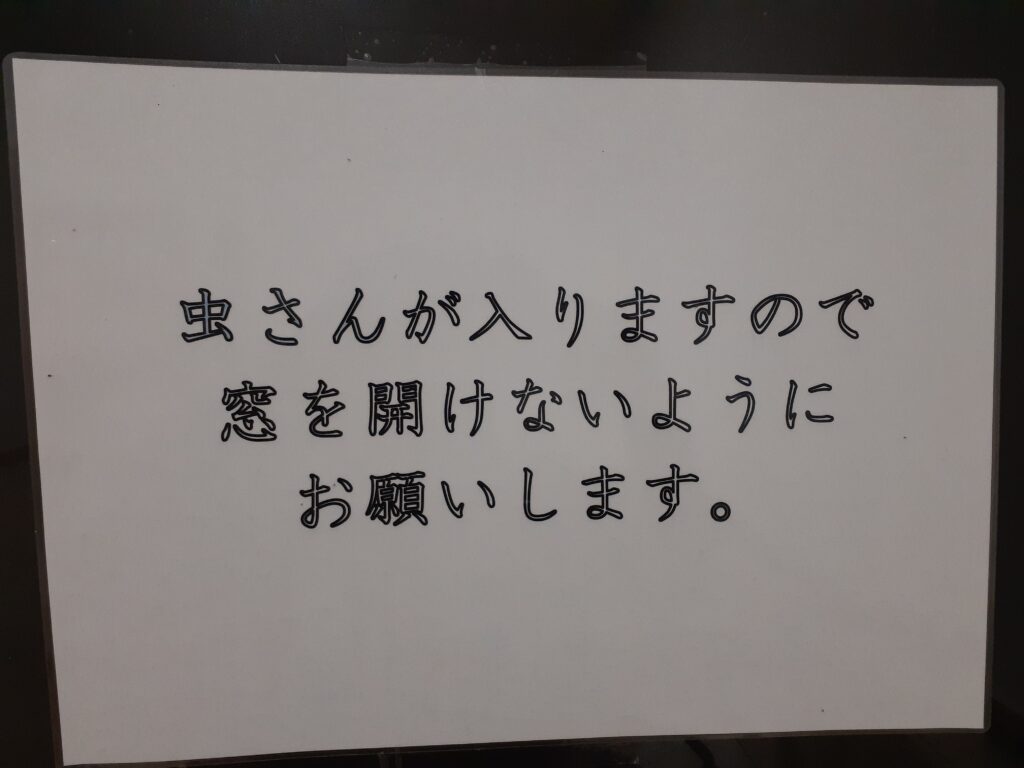 虫さんが入りますので
窓を開けないように
お願いします。